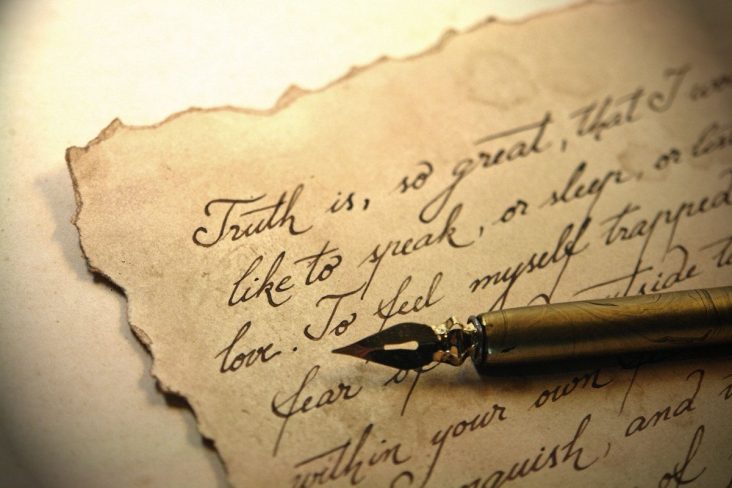 Truth is, so great, that I
like to speak, or sleep, or
love. To feel myself trapped
fear
within your own
and
of